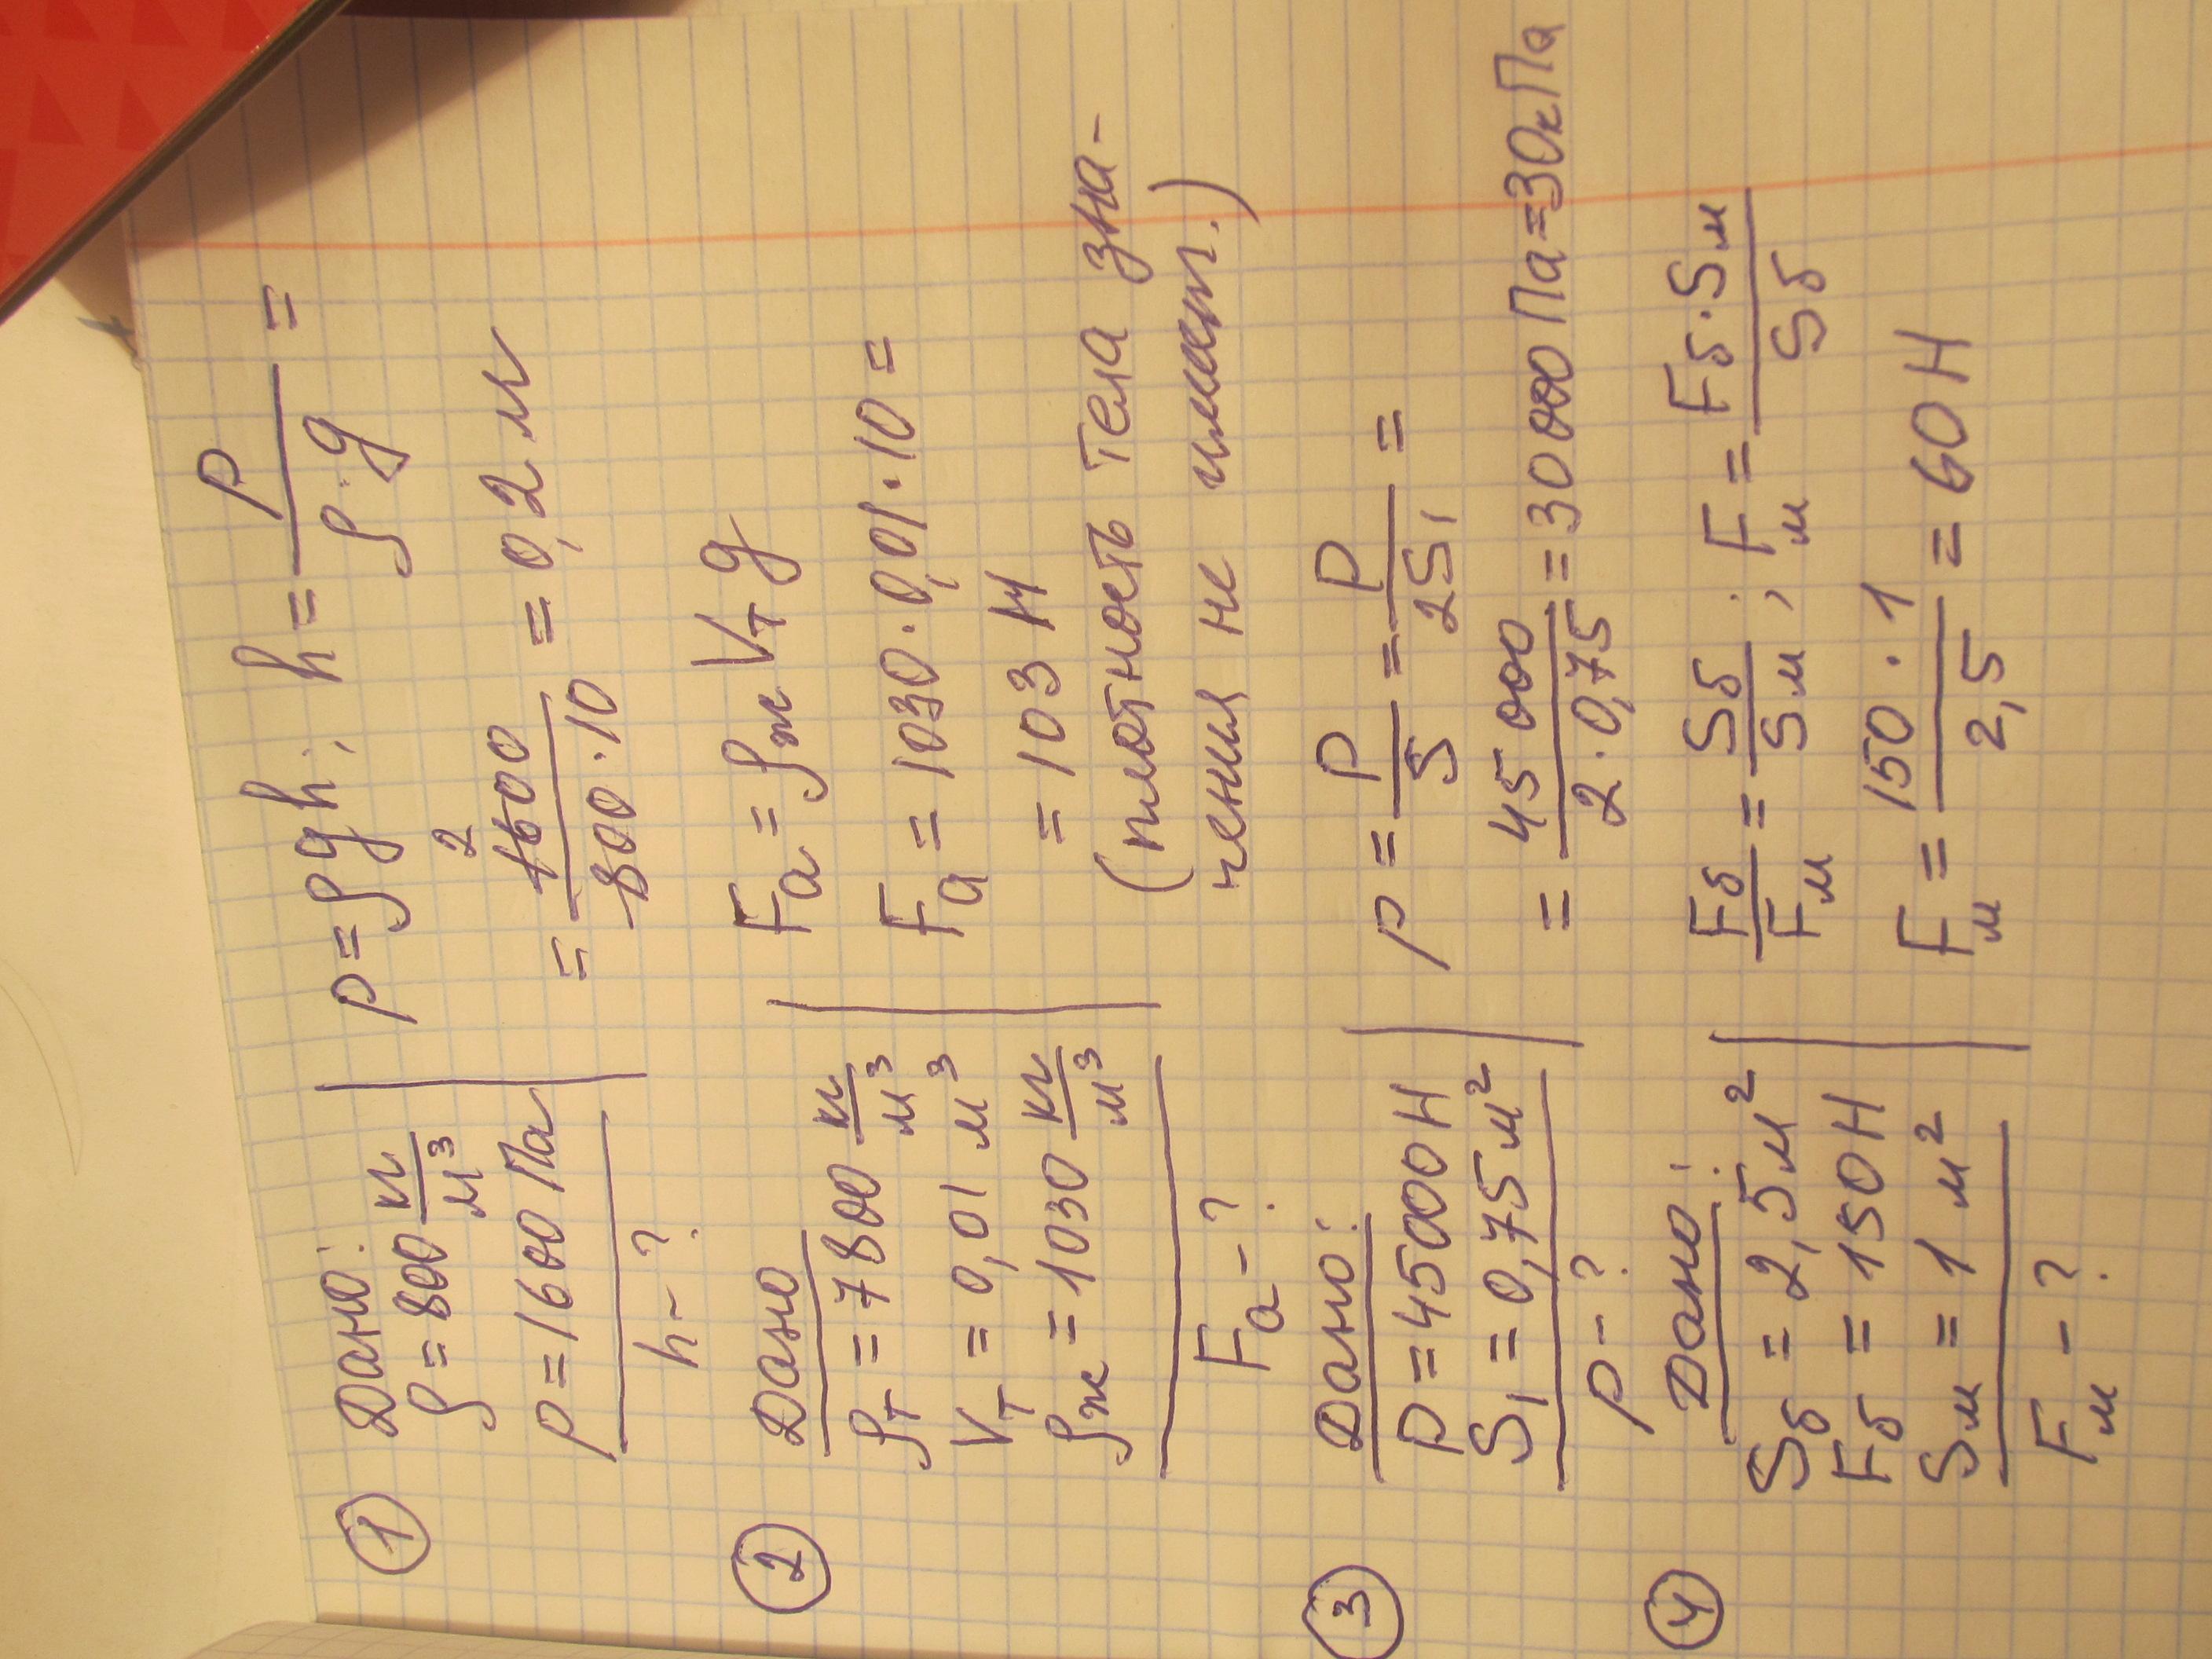 ① Дано:
ρ = 800 кг/м³
p = 1600 Па
h - ?
p = ρgh; h = p/(ρ·g) =
= 1600/(800·10) = 0,2 м
2
② Дано
ρт = 7800 кг/м³
Vт = 0,01 м³
ρж = 1030 кг/м³
Fa - ?
Fa = ρж Vт g
Fa = 1030·0,01·10 =
= 103 Н
(плотность тела зна-
чения не имеет.)
③ Дано:
P = 45000 Н
S₁ = 0,75 м²
p - ?
p = P/S = P/2S₁ =
= 45000/(2·0,75) = 30000 Па = 30 кПа
④ Дано:
Sб = 2,5 м²
Fб = 150 Н
Sм = 1 м²
Fм - ?
Fб/Fм = Sб/Sм; Fм = Fб·Sм/Sб
Fм = 150·1/2,5 = 60 Н